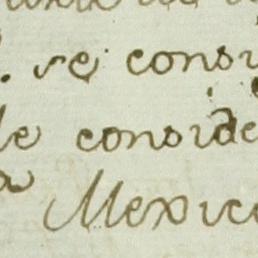 se consi
le conside
Mexico